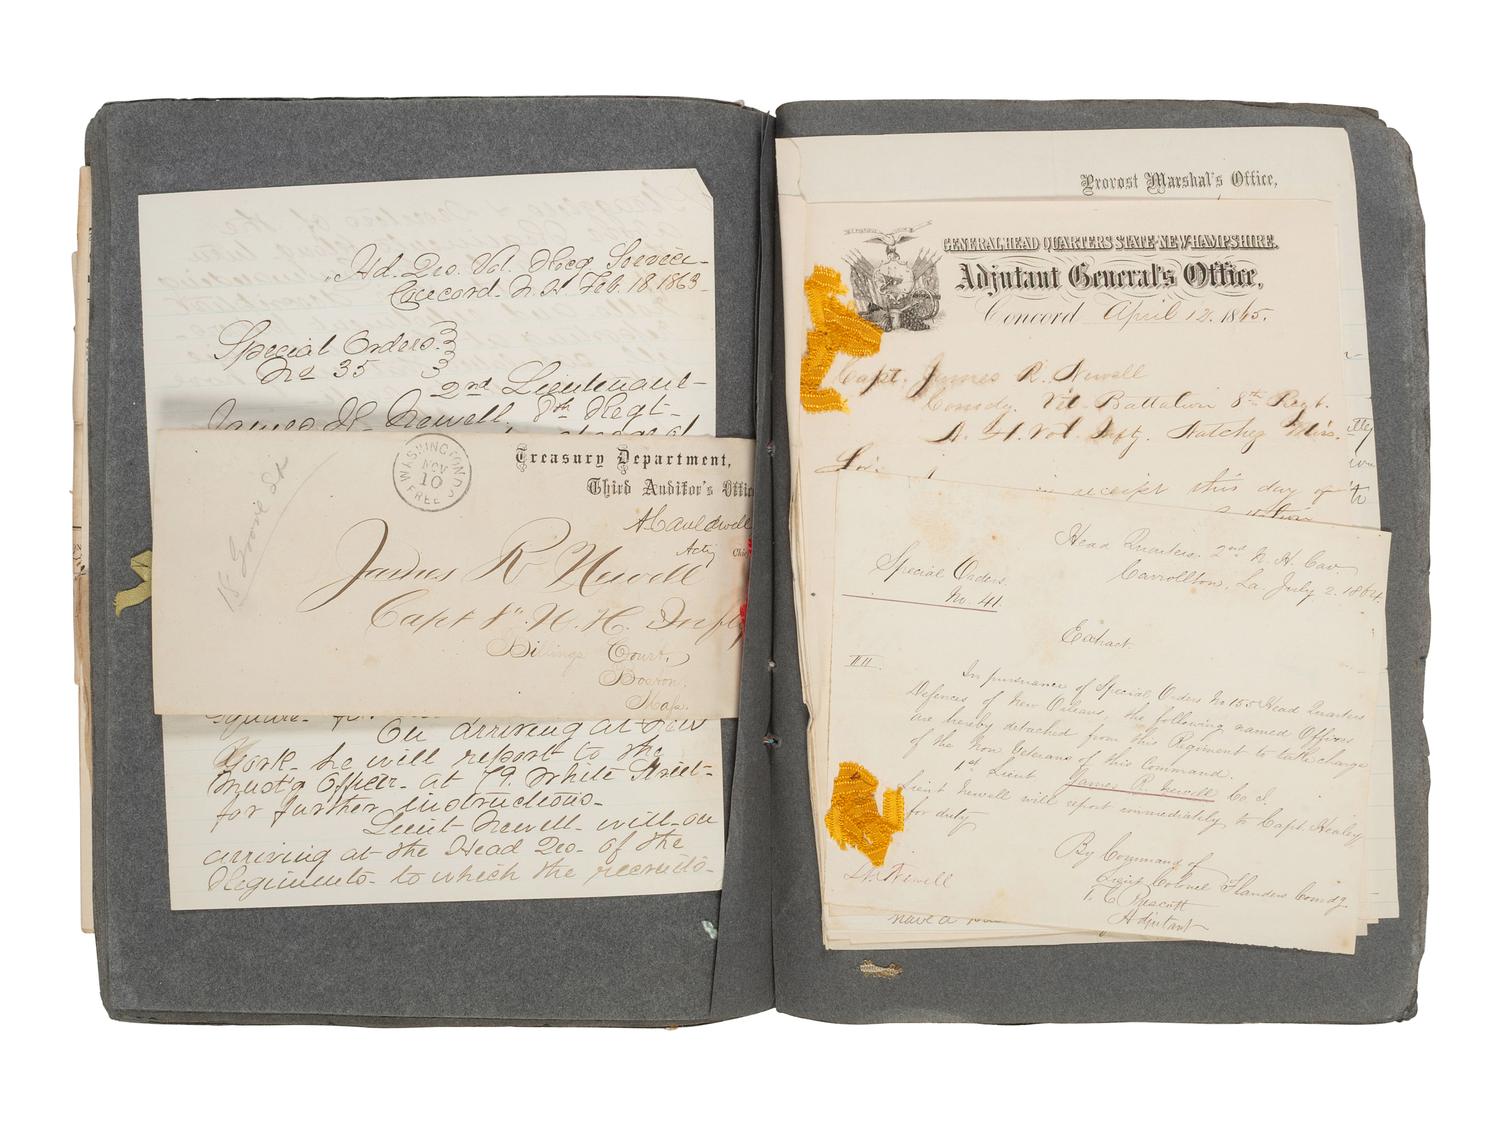 Hd. Qrs. Vol. Recg. Service
Concord. N. H. Feb. 18 1863
Special Orders.
No 35
2nd Lieutenant
James R. Newell, 8th Regt.
WASHINGTON D.C.
NOV
10
FREE
Treasury Department,
Third Auditor's Offic
Acting
18 Grove St
James R Newell
Capt 8th N. H. Infty
Billings Court,
Boston.
Mass.
On arriving at New
York he will report to the
Must'g Officer at 79. White Street
for further instructions.
Lieut Newell will on
arriving at the Head Qrs. of the
Regiments to which the recruits
Provost Marshal's Office,
GENERAL HEAD QUARTERS STATE NEW-HAMPSHIRE.
Adjutant General's Office,
Concord April 12. 1865.
Capt. James R. Newell
Comdg. Vet. Battalion 8th Regt.
N. H. Vol. Infty. Natchez Miss.
Sir:
in receipt this day of
Head Quarters 2nd N. H. Cav.
Carrollton, La July 2. 1864.
Special Orders
No. 41.
Extract.
III.
In pursuance of Special Orders No 155 Head Quarters
Defences of New Orleans, the following named Officers
are hereby detached from this Regiment to take charge
of the Non Veterans of this Command.
1st Lieut James R. Newell Co. I.
Lieut Newell will report immediately to Capt. Healey
for duty
By Command of
Lieut Colonel Flanders Comdg.
T. C. Prescott
Adjutant
Lt. Newell
have a